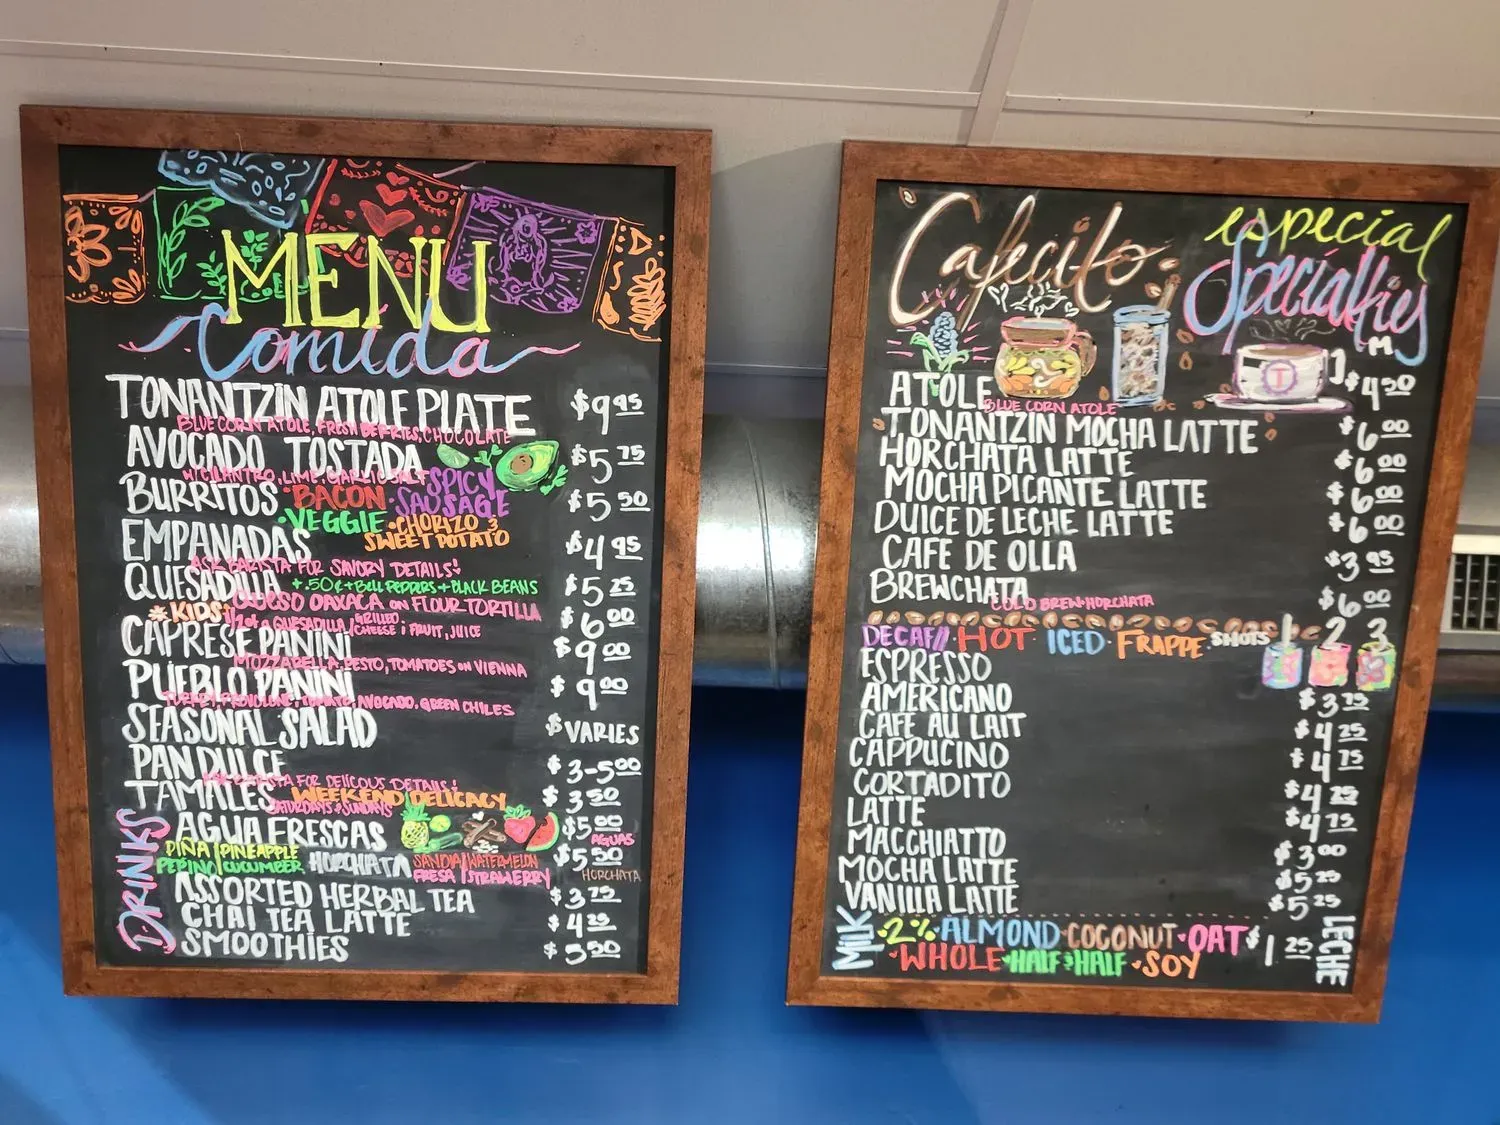 MENU
Comida
TONANTZIN ATOLE PLATE $9 95
BLUE CORN ATOLE, FRESH BERRIES, CHOCOLATE
AVOCADO TOSTADA $5 75
W/ CILANTRO, LIME, GARLIC SALT
BURRITOS • BACON • SPICY SAUSAGE $5 50
• VEGGIE • CHORIZO & SWEET POTATO
EMPANADAS $4 95
ASK BARISTA FOR SAVORY DETAILS!
QUESADILLA + .50¢ + BELL PEPPERS + BLACK BEANS $5 25
QUESO OAXACA on FLOUR TORTILLA
KIDS: 1/2 of a QUESADILLA / GRILLED CHEESE; FRUIT, JUICE $6 00
CAPRESE PANINI $9 00
MOZZARELLA, PESTO, TOMATOES on VIENNA
PUEBLO PANINI $9 00
TURKEY, PROVOLONE, TOMATO, AVOCADO, GREEN CHILES
SEASONAL SALAD $VARIES
PAN DULCE $3-5 00
ASK BARISTA FOR DELICOUS DETAILS!
TAMALES WEEKEND DELICACY $3 50
SATURDAYS & SUNDAYS
DRINKS
AGUA FRESCAS $5 00 AGUAS
PIÑA / PINEAPPLE
PEPINO / CUCUMBER HORCHATA SANDIA / WATERMELON $5 50 HORCHATA
FRESA / STRAWBERRY
ASSORTED HERBAL TEA $3 75
CHAI TEA LATTE $4 25
SMOOTHIES $5 50
Cafecito especial
Specialties
M
T
ATOLE $4 50
BLUE CORN ATOLE
TONANTZIN MOCHA LATTE $6 00
HORCHATA LATTE $6 00
MOCHA PICANTE LATTE $6 00
DULCE DE LECHE LATTE $6 00
CAFE DE OLLA $3 95
BREWCHATA $6 00
COLD BREW + HORCHATA
DECAF // HOT ICED • FRAPPE • SHOTS 1 2 3
ESPRESSO
AMERICANO $3 75
CAFE AU LAIT $4 25
CAPPUCINO $4 75
CORTADITO $4 25
LATTE $4 75
MACCHIATTO $3 00
MOCHA LATTE $5 25
VANILLA LATTE $5 25
MILK • 2% • ALMOND • COCONUT • OAT $1 25 LECHE
WHOLE • HALF & HALF • SOY